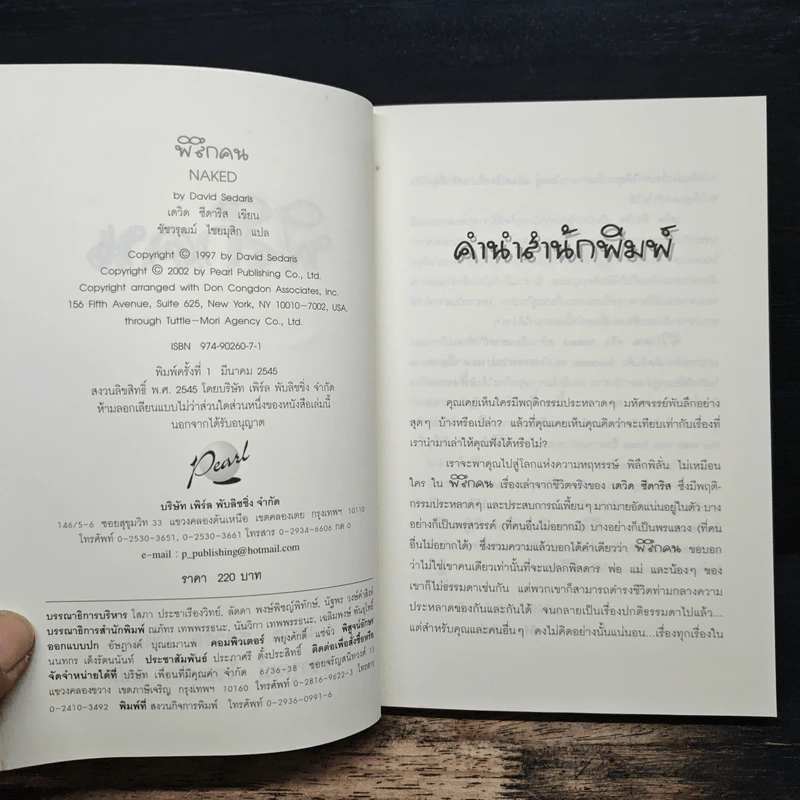 พิรึกคน
NAKED
by David Sedaris
เดวิด ซีดาริส เขียน
ชัชวรุฒม์ ไชยมุสิก แปล
Copyright © 1997 by David Sedaris
Copyright © 2002 by Pearl Publishing Co., Ltd.
Copyright arranged with Don Congdon Associates, Inc.
156 Fifth Avenue, Suite 625, New York, NY 10010-7002, USA.
through Tuttle-Mori Agency Co., Ltd.
ISBN 974-90260-7-1
พิมพ์ครั้งที่ 1 มีนาคม 2545
สงวนลิขสิทธิ์ พ.ศ. 2545 โดยบริษัท เพิร์ล พับลิชชิ่ง จำกัด
ห้ามลอกเลียนแบบไม่ว่าส่วนใดส่วนหนึ่งของหนังสือเล่มนี้
นอกจากได้รับอนุญาต
Pearl
บริษัท เพิร์ล พับลิชชิ่ง จำกัด
146/5-6 ซอยสุขุมวิท 33 แขวงคลองตันเหนือ เขตคลองเตย กรุงเทพฯ 10110
โทรศัพท์ 0-2530-3651, 0-2530-3661 โทรสาร 0-2934-6606 กด 0
e-mail : p_publishing@hotmail.com
ราคา 220 บาท
บรรณาธิการบริหาร โสภา ประชาเรืองวิทย์, ลัดดา พงษ์พิชญ์พิทักษ์, นัฐพร วงษ์คำสิงห์
บรรณาธิการสำนักพิมพ์ ณภัทร เทพพรรธนะ, นันวิกา เทพพรรธนะ, เฉลิมพงษ์ พันธุ์โพธิ์
ออกแบบปก อัษฎางค์ บุณยมานพ คอมพิวเตอร์ พยุงศักดิ์ แซ่ฉั่ว พิสูจน์อักษร
นนทกร เต็งรัตนนันท์ ประชาสัมพันธ์ ประภาศรี ตั้งประสิทธิ์ ติดต่อเพื่อสั่งซื้อหรือ
จัดจำหน่ายได้ที่ บริษัท เพื่อนที่มีคุณค่า จำกัด 6/36-38 ซอยจรัญสนิทวงศ์ 13
แขวงคลองขวาง เขตภาษีเจริญ กรุงเทพฯ 10160 โทรศัพท์ 0-2816-9622-3 โทรสาร
0-2410-3492 พิมพ์ที่ สงวนกิจการพิมพ์ โทรศัพท์ 0-2936-0991-6
คำนำสำนักพิมพ์
คุณเคยเห็นใครมีพฤติกรรมประหลาดๆ มหัศจรรย์พันลึกอย่าง
สุดๆ บ้างหรือเปล่า? แล้วที่คุณเคยเห็นคุณคิดว่าจะเทียบเท่ากับเรื่องที่
เรานำมาเล่าให้คุณฟังได้หรือไม่?
เราจะพาคุณไปสู่โลกแห่งความหฤหรรษ์ พิลึกพิลั่น ไม่เหมือน
ใคร ใน พิรึกคน เรื่องเล่าจากชีวิตจริงของ เดวิด ซีดาริส ซึ่งมีพฤติ-
กรรมประหลาดๆ และประสบการณ์เพี้ยนๆ มากมายอัดแน่นอยู่ในตัว บาง
อย่างก็เป็นพรสวรรค์ (ที่คนอื่นไม่อยากมี) บางอย่างก็เป็นพรแสวง (ที่คน
อื่นไม่อยากได้) ซึ่งรวมความแล้วบอกได้คำเดียวว่า พิรึกคน ขอบอก
ว่าไม่ใช่เขาคนเดียวเท่านั้นที่จะแปลกพิสดาร พ่อ แม่ และน้องๆ ของ
เขาก็ไม่ธรรมดาเช่นกัน แต่พวกเขาก็สามารถดำรงชีวิตท่ามกลางความ
ประหลาดของกันและกันได้ จนกลายเป็นเรื่องปกติธรรมดาไปแล้ว...
แต่สำหรับคุณและคนอื่นๆ คงไม่คิดอย่างนั้นแน่นอน...เรื่องทุกเรื่องใน